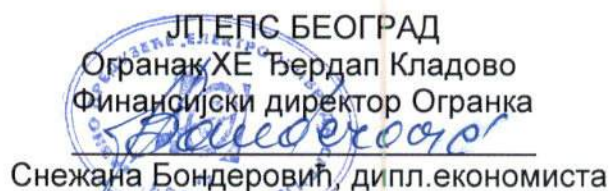 ЈП ЕПС БЕОГРАД
Огранак ХЕ Ђердап Кладово
Финансијски директор Огранка
Снежана Бондеровић, дипл.економиста